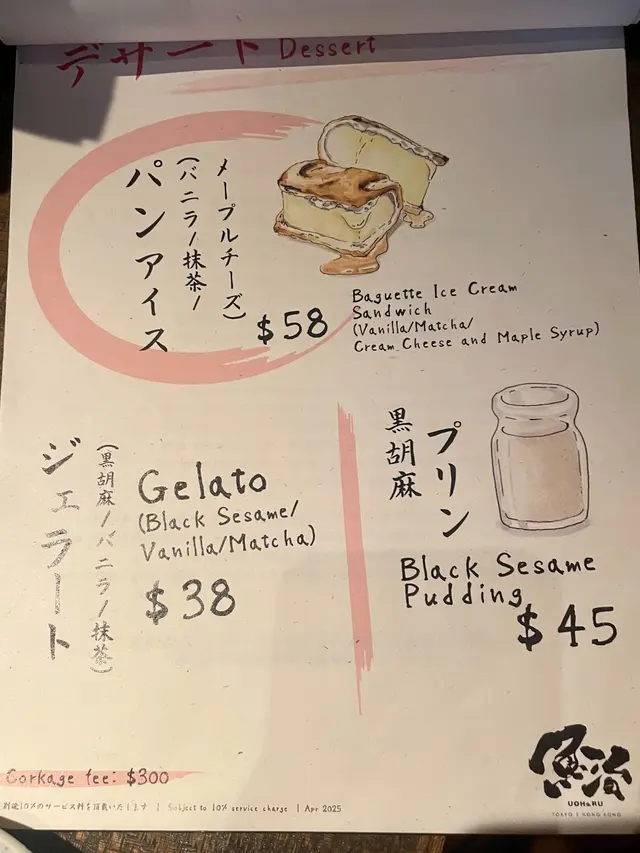 デザート Dessert
パンアイス
(バニラ/抹茶/
メープルチーズ)
$58
Baguette Ice Cream
Sandwich
(Vanilla/Matcha/
Cream Cheese and Maple Syrup)
ジェラート
(黒胡麻/バニラ/抹茶)
Gelato
(Black Sesame/
Vanilla/Matcha)
$38
黒胡麻
プリン
Black Sesame
Pudding
$45
Corkage fee: $300
別途10%のサービス料を頂戴いたします | Subject to 10% service charge | Apr 2025
魚治
UOHARU
TOKYO | HONG KONG